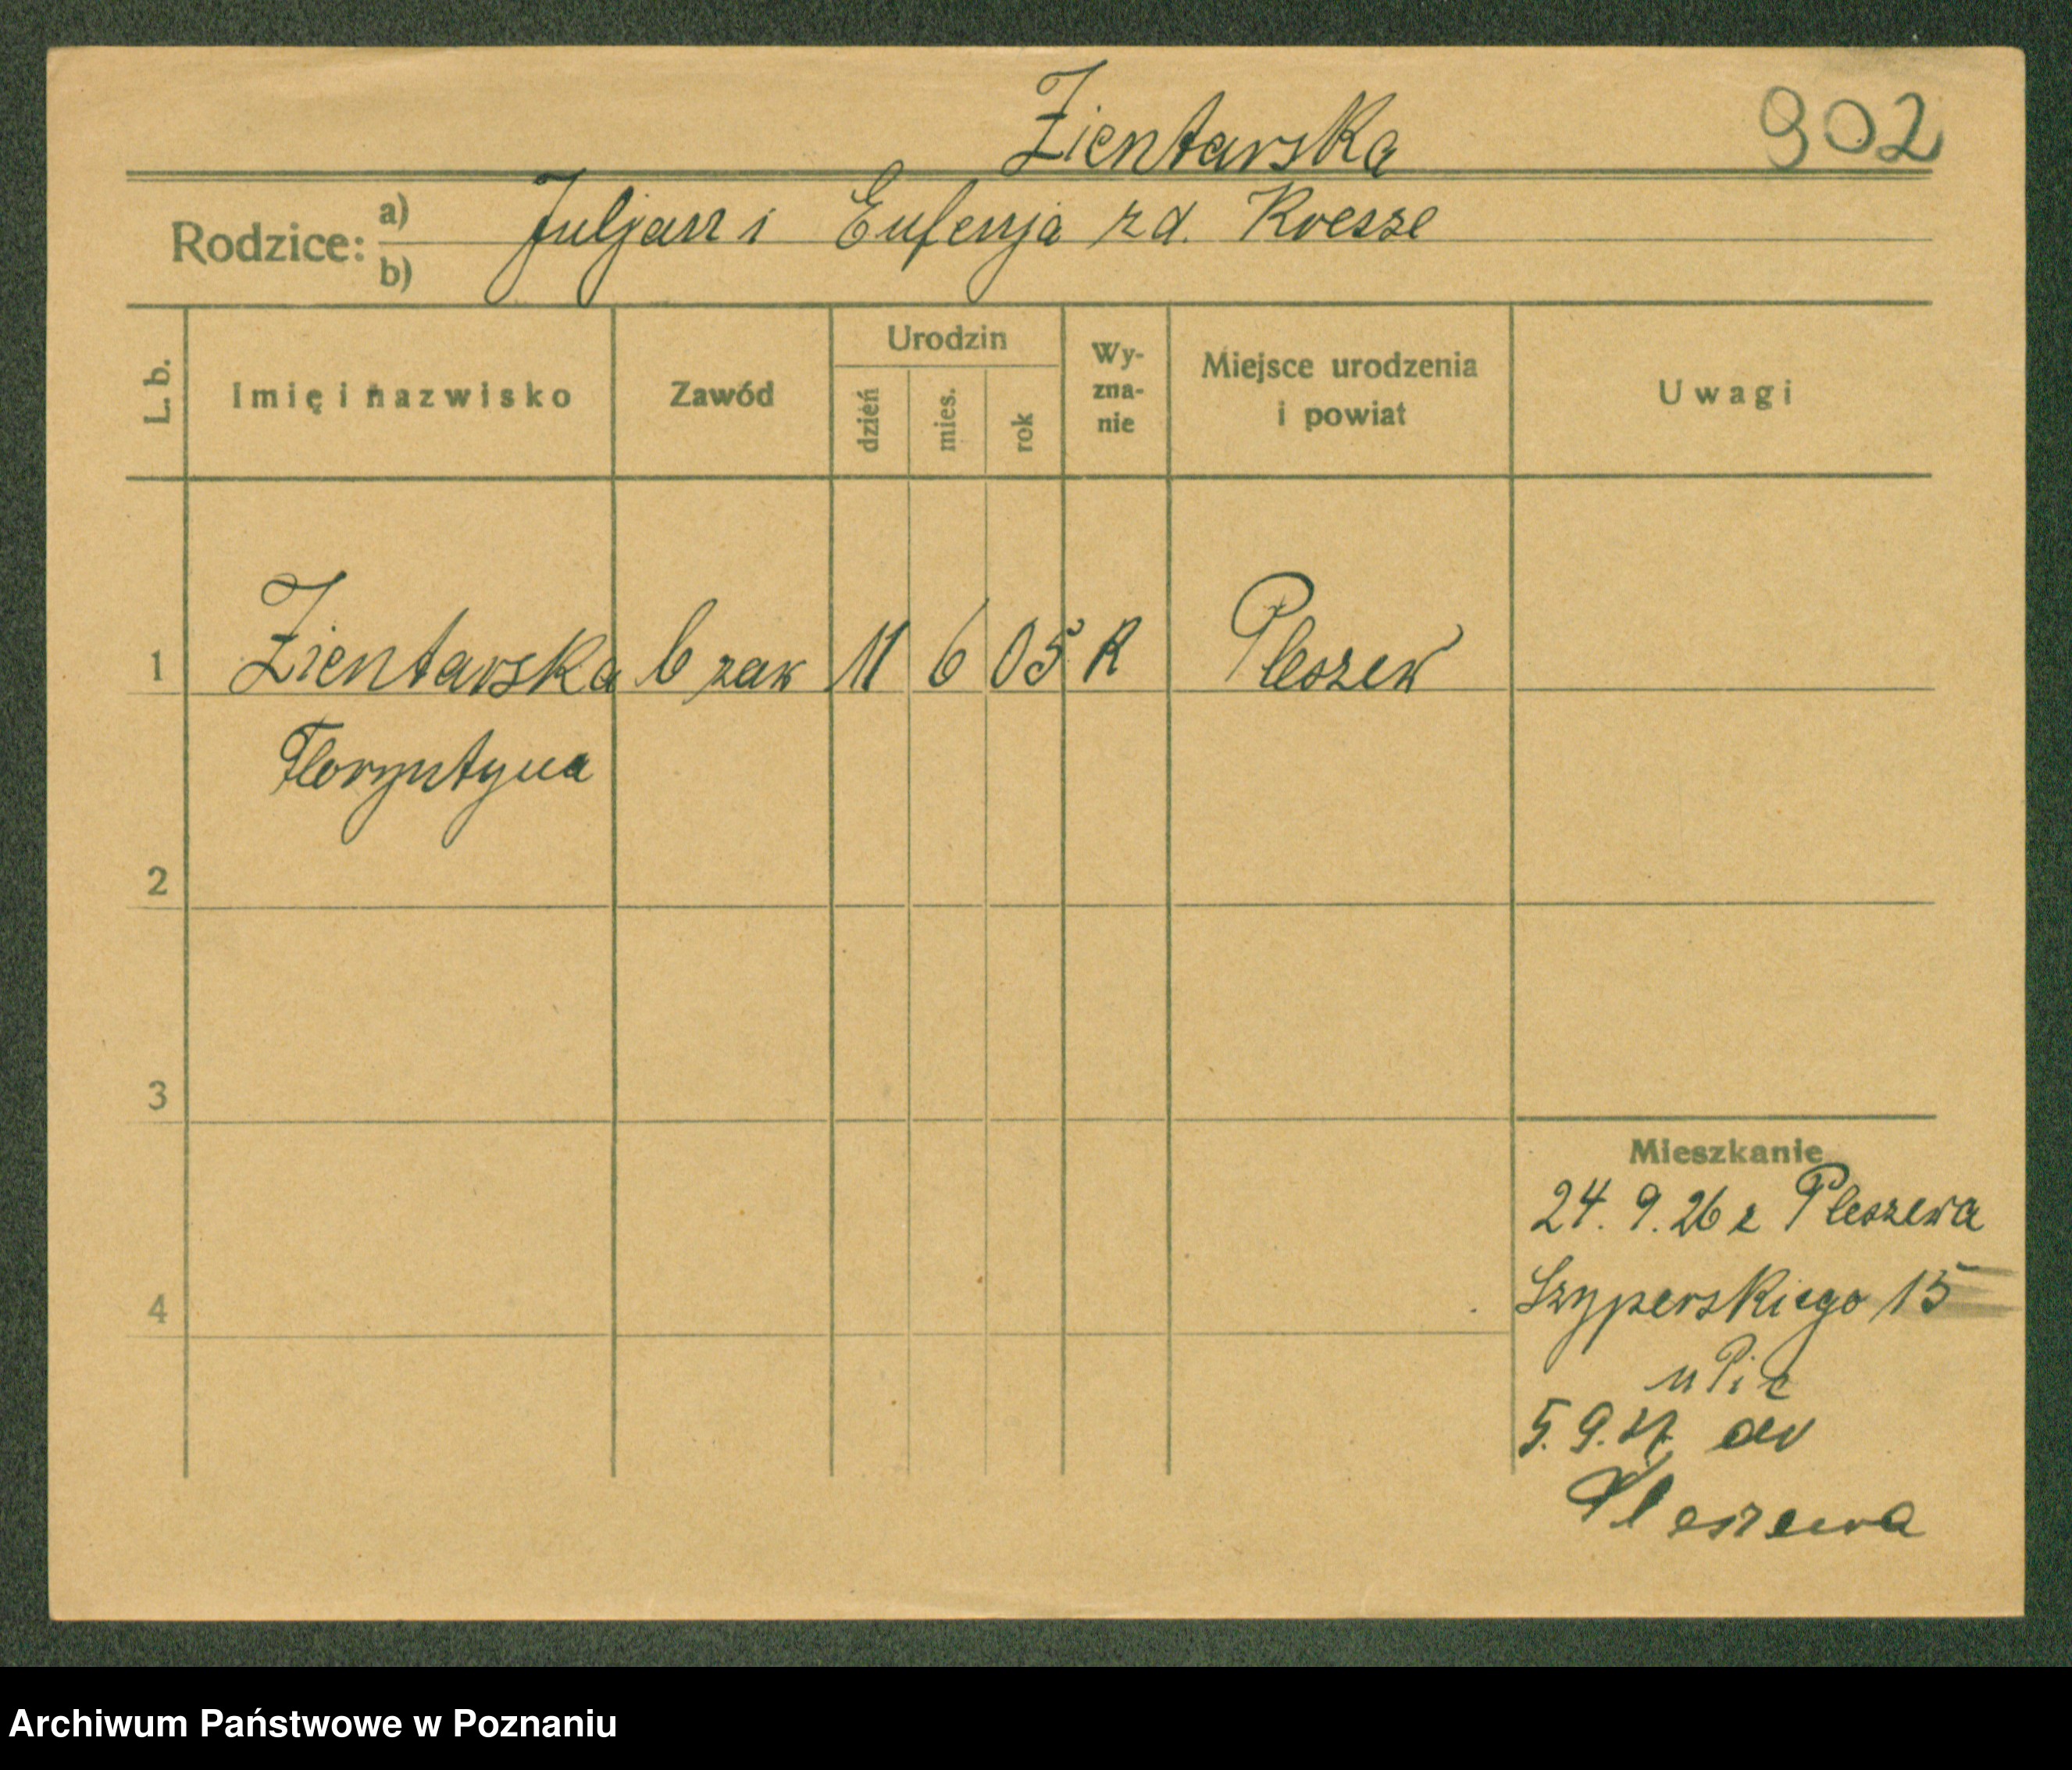 Zientarska
902
Rodzice: a) Juljan i Eufenja zd. Roesze
b)
L. b. Imię i nazwisko Zawód Urodzin dzień mies. rok Wy-zna-nie Miejsce urodzenia i powiat Uwagi
1 Zientarska b zaw 11 6 05 R Pleszew
Floryntyna
2
3
Mieszkanie
24. 9. 26 z Pleszewa
4 Szyperskiego 15
5. 9. 27 do
Pleszewa
Archiwum Państwowe w Poznaniu